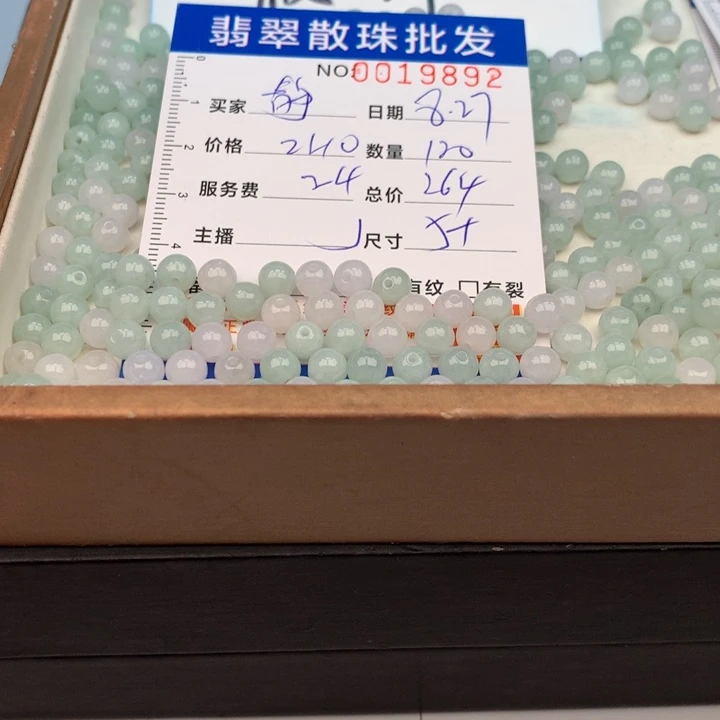 翡翠散珠批发
NO:0019892
0
买家 静 日期 8.27
1
价格 240 数量 120
2
服务费 24 总价 264
3
主播 尺寸 5+
4
有纹 □有裂